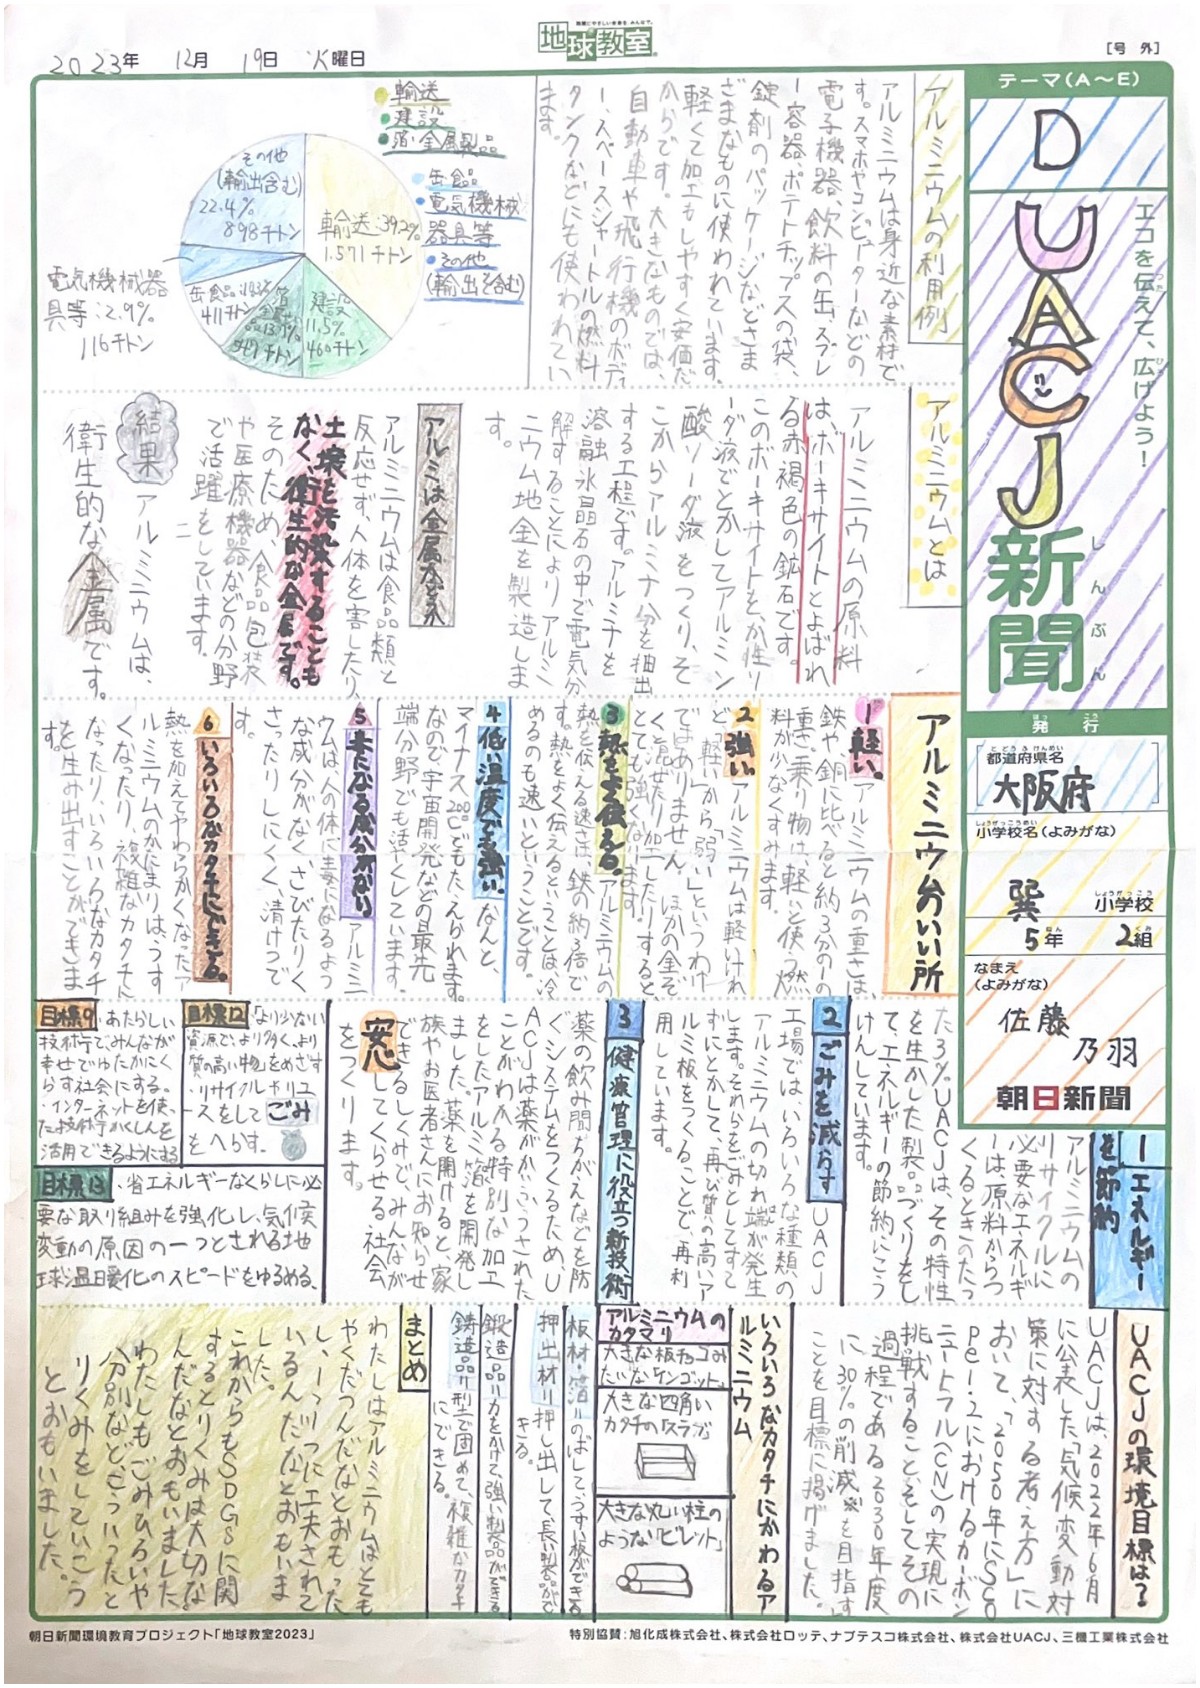 2023年 12月 19日 火曜日
環境にやさしい未来を みんなで。
地球教室
[号 外]
テーマ(A～E)
D
エコを伝えて、広げよう！
つた
ひろ
UACJ
新聞
しんぶん
発 行
はっ こう
都道府県名
とどうふけんめい
大阪府
小学校名(よみがな)
しょうがっこうめい
巽
小学校
しょうがっこう
5年 2組
ねん くみ
なまえ
(よみがな)
佐藤
乃羽
朝日新聞
アルミニウムの利用例
アルミニウムは身近な素材で
す。スマホやコンピューターなどの
電子機器、飲料の缶、スプレ
ー容器、ポテトチップスの袋、
錠剤のパッケージなどさま
ざまなものに使われています。
軽くて加工もしやすく安価だ
からです。大きなものでは、
自動車や飛行機のボディ
ー、スペースシャトルの燃料
タンクなどにも使われてい
ます。
輸送
建設
箔・金属製品
缶食品
電気機械
器具等
その他
(輸出を含む)
輸送:39.2%
1.571千トン
建設
11.5%
460千トン
547千トン
411千トン
電気機械器
具等:2.9%
116千トン
その他
(輸出含む)
22.4%
898千トン
アルミニウムとは
アルミニウムの原料
は、ボーキサイトとよばれ
る赤褐色の鉱石です。
このボーキサイトを、か性ソ
ーダ液でとかしてアルミン
酸ソーダ液をつくり、そ
こからアルミナ分を抽出
する工程です。アルミナを
溶融氷晶石の中で電気分
解することによりアルミ
ニウム地金を製造しま
す。
アルミは金属なのか
アルミニウムは食品類と
反応せず、人体を害したり、
土壌を汚染することも
なく、衛生的な金属です。
そのため、食品包装
や医療機器などの分野
で活躍をしています。
結果
アルミニウムは、
＝
衛生的な金属です。
アルミニウムのいい所
1 軽い。
アルミニウムの重さは、
鉄や銅に比べると約3分の一の
重さ。乗り物は、軽いと使う燃
料が少なくすみます。
2 強い。
アルミニウムは軽いけれ
ど、「軽いから「弱い」というわけ
ではありません。ほかの金ぞ
くを混ぜたり加工したりすると、
とても強くなります。
3 熱をよく伝える。
アルミニウムの
熱を伝える速さは、鉄の約3倍で
す。熱をよく伝えるということは、冷
めるのも速いということです。
4 低い温度でも強い。
なんと、
マイナス200℃でもたえられます。
なので、宇宙開発などの最先
端分野でも活やくしています。
5 毒になる成分がない。
アルミニ
ウムは人の体に毒になるよう
な成分がなく、さびたりく
さったりしにくく、清けつで
す。
6 いろいろなカタチにできる。
熱を加えてやわらかくなったア
ルミニウムのかたまりは、うす
くなったり、複雑なカタチに
なったり、いろいろなカタチ
を生み出すことができま
す。
1 エネルギー
を節約
アルミニウムの
リサイクルに
必要なエネルギ
ーは、原料からつ
くるときのたっ
た3%。UACJは、その特性
を生かした製品づくりをし
て、エネルギーの節約にこう
けんしています。
2 ごみを減らす
UACJ
工場では、いろいろな種類の
アルミニウムの切れ端が発生
します。それらをごみとしてすて
ずにとかして、再び質の高いア
ルミ板をつくることで、再利
用しています。
3 健康管理に役立つ新技術
薬の飲み間ちがえなどを防
ぐシステムをつくるため、U
ACJは薬がかいふうされた
ことがわかる特別な加工
をしたアルミ箔を開発し
ました。薬を開けると、家
族やお医者さんにお知らせ
できるしくみで、みんなが
安心してくらせる社会
をつくります。
目標12
「より少ない
資源で、より多く、より
質の高い物」をめざす
・リサイクルやリユ
ースをして ごみ
をへらす。
目標9
・あたらしい
技術で、みんなが
幸せでゆたかにく
らす社会にする。
・インターネットを使っ
た技術やかくしんを
活用できるようにする
目標13
・省エネルギーなくらしに必
要な取り組みを強化し、気候
変動の原因の一つとされる地
球温暖化のスピードをゆるめる。
UACJの環境目標は？
UACJは、2022年6月
に公表した「気候変動対
策に対する考え方」に
おいて、「2050年にSCO
PE1・2におけるカーボン
ニュートラル(CN)の実現に
挑戦すること、そしてその
過程である2030年度
に30%の削減※を目指す」
ことを目標に掲げました。
いろいろなカタチにかわるア
ルミニウム
アルミニウムの
カタマリ
大きな板チョコみ
たいな「インゴット」
大きな四角い
カタチの「スラブ」
大きな丸い柱の
ような「ビレット」
板材・箔=のばして、うすい板ができる。
押出材=押し出して、長い製品がで
きる。
鍛造品=力をかけて強い製品ができる
鋳造品=型で固めて、複雑なカタチ
にできる。
まとめ
わたしはアルミニウムはとても
やくだつんだなとおもった
し、一つ一つに工夫されて
いるんだなとおもいま
した。
これからもSDGsに関
するとりくみは大切な
んだなとおもいました
わたしもごみひろいや
分別などどういったと
りくみをしていこう
とおもいました。
朝日新聞環境教育プロジェクト「地球教室2023」
特別協賛：旭化成株式会社、株式会社ロッテ、ナブテスコ株式会社、株式会社UACJ、三機工業株式会社